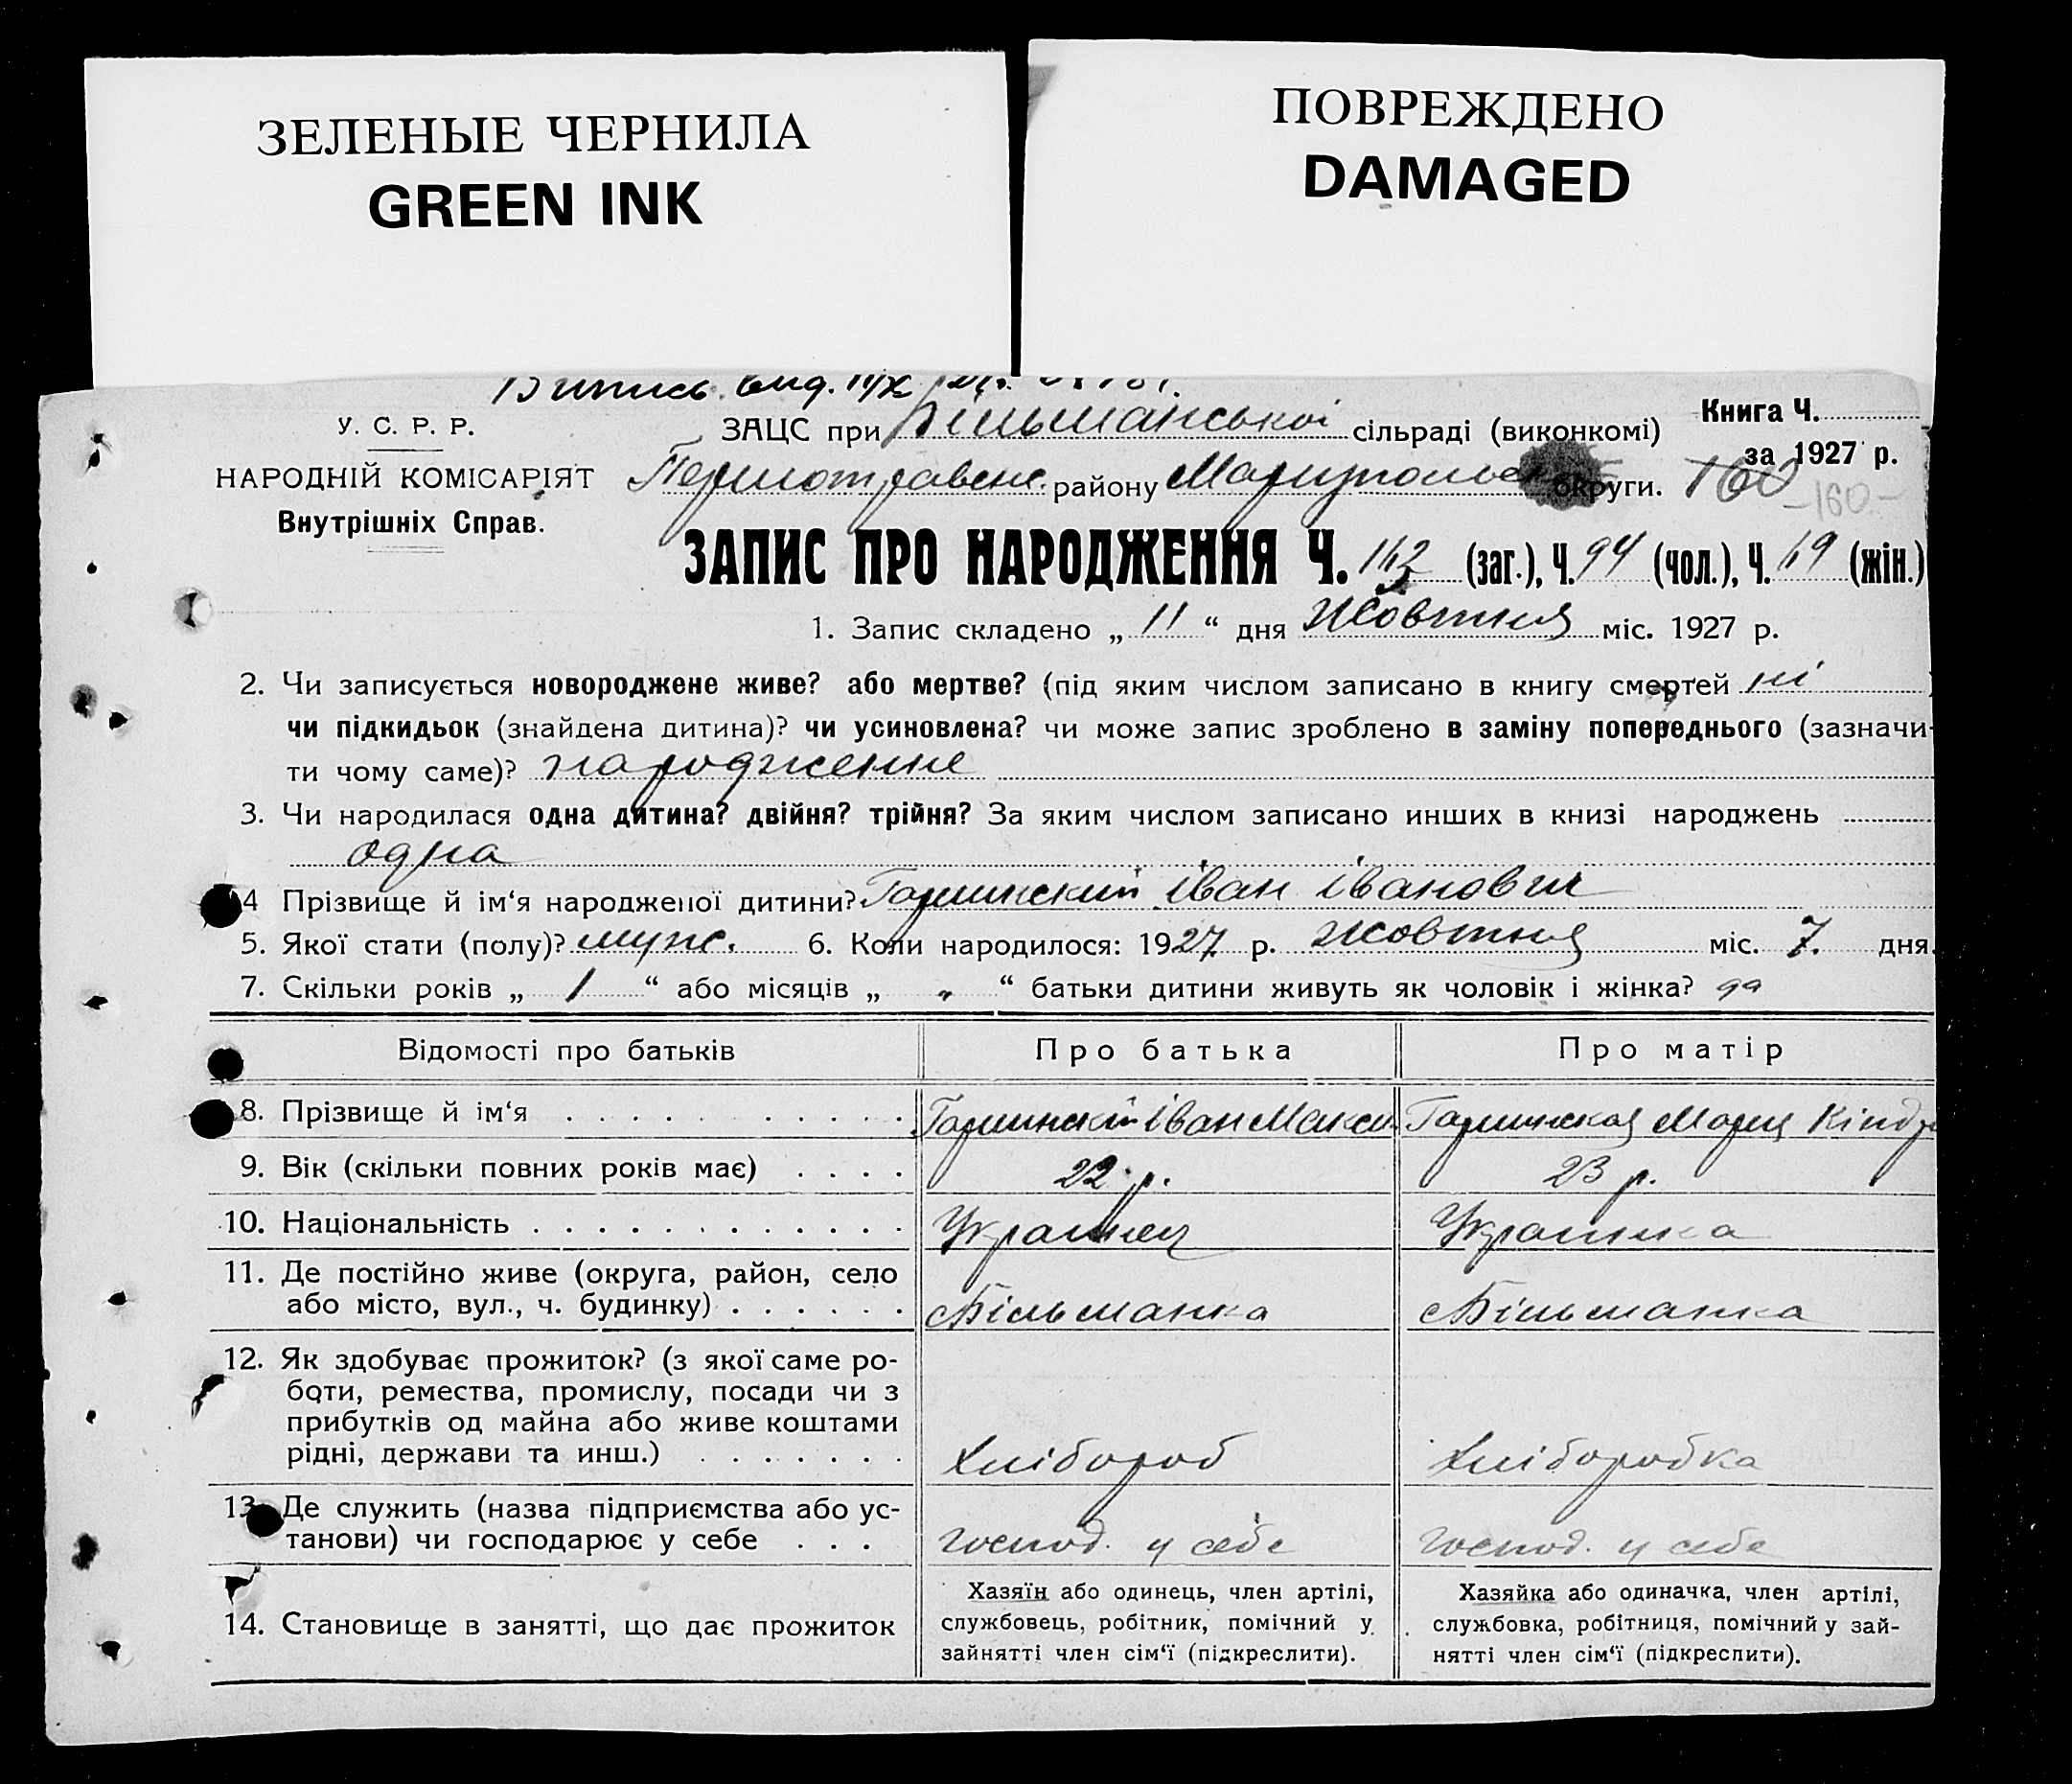 ЗЕЛЕНЫЕ ЧЕРНИЛА
GREEN INK
ПОВРЕЖДЕНО
DAMAGED
У. С. Р. Р.
НАРОДНІЙ КОМІСАРІЯТ
Внутрішніх Справ.
ЗАЦС при Більманській сільраді (виконкомі)
Книга Ч.
за 1927 р.
Першотравен. району Маріупольск округи. 160
-160-
ЗАПИС ПРО НАРОДЖЕННЯ Ч. 163 (заг.), Ч. 94 (чол.), Ч. 69 (жін.)
1. Запис складено „ 11 “ дня Жовтня міс. 1927 р.
2. Чи записується новороджене живе? або мертве? (під яким числом записано в книгу смертей ні )
чи підкидьок (знайдена дитина)? чи усиновлена? чи може запис зроблено в заміну попереднього (зазначи-
ти чому саме)? народження
3. Чи народилася одна дитина? двійня? трійня? За яким числом записано инших в книзі народжень
одна
4 Прізвище й ім‘я народженої дитини? Гаринский Іван Іванович
5. Якої стати (полу)? муж. 6. Коли народилося: 1927 р. жовтня міс. 7. дня.
7. Скільки років „ 1 “ або місяців „ „ “ батьки дитини живуть як чоловік і жінка? да
Відомості про батьків Про батька Про матір
8. Прізвище й ім‘я Гаринский Іван Макси Гаринская Мария Кіндр
9. Вік (скільки повних років має) 22 р. 23 р.
10. Національність Украинец Украинка
11. Де постійно живе (округа, район, село
або місто, вул., ч. будинку) Більманка Більманка
12. Як здобуває прожиток? (з якої саме ро-
боти, ремества, промислу, посади чи з
прибутків од майна або живе коштами
рідні, держави та инш.) Хлібороб Хліборобка
13. Де служить (назва підприємства або ус-
танови) чи господарює у себе господ. у себе господ. у себе
14. Становище в занятті, що дає прожиток
Хазяїн або одинець, член артілі,
службовець, робітник, помічний у
зайнятті член сім‘ї (підкреслити).
Хазяйка або одиначка, член артілі,
службовка, робітниця, помічний у зай-
нятті член сім‘ї (підкреслити).